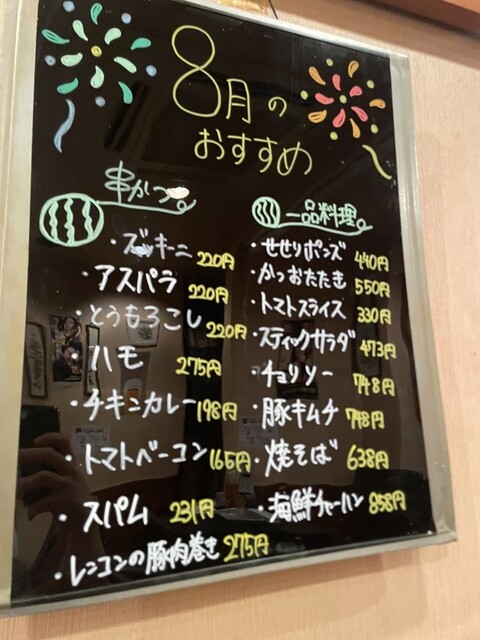 8月の
おすすめ
串かつ。
・ズッキーニ 220円
・アスパラ 220円
・とうもろこし 220円
・ハモ 275円
・チキンカレー 198円
・トマトベーコン 165円
・スパム 231円
・レンコンの豚肉巻き 275円
一品料理。
・せせりポンズ 440円
・かつおたたき 550円
・トマトスライス 330円
・スティックサラダ 473円
・チョリソー 748円
・豚キムチ 748円
・焼そば 638円
・海鮮チャーハン 858円